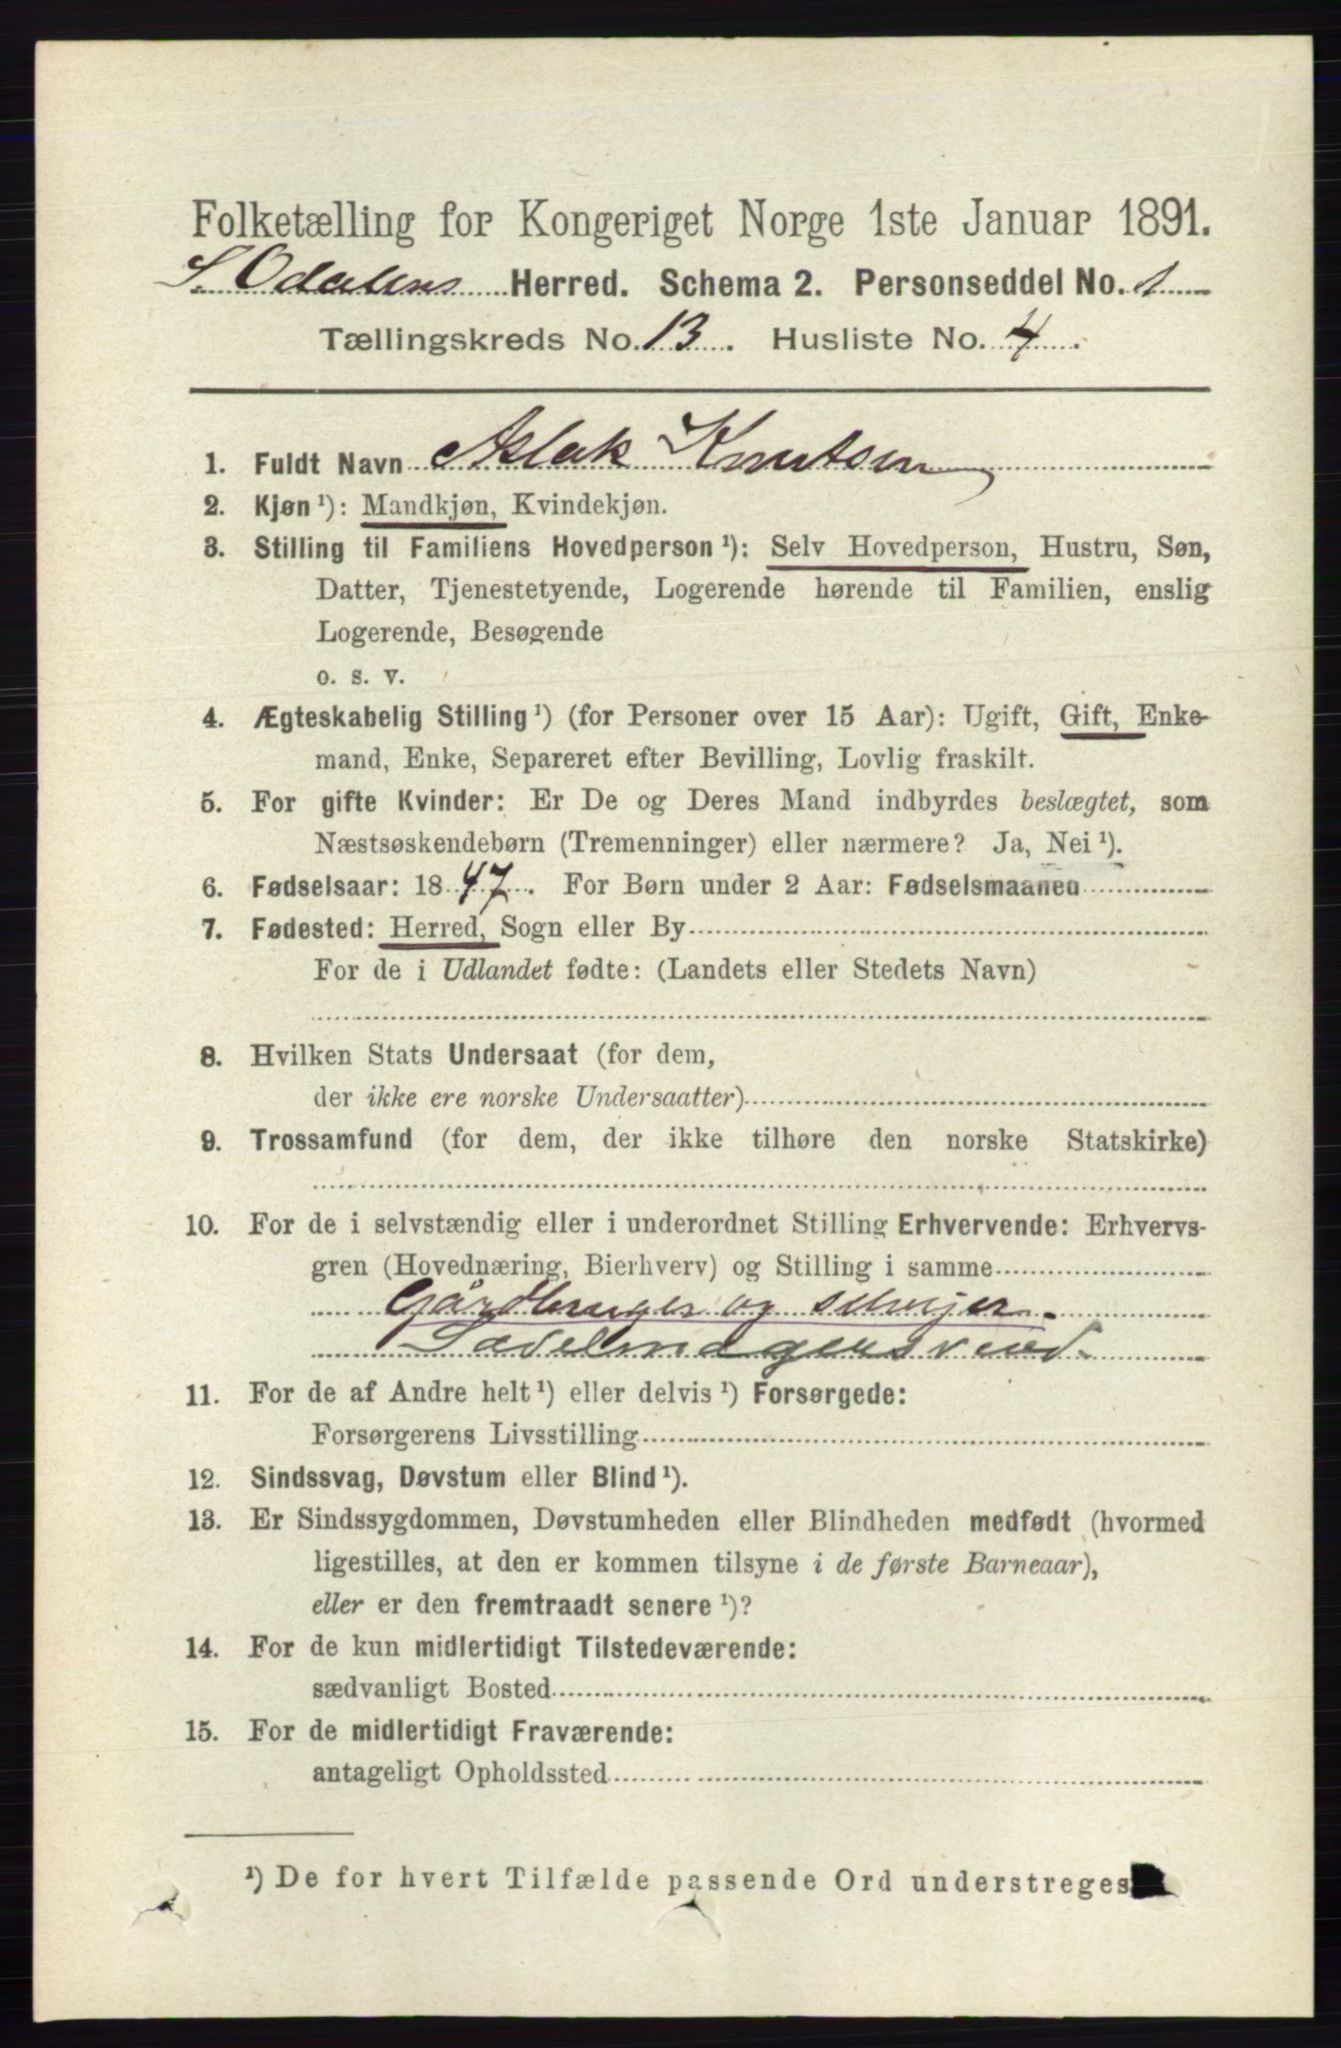 Folketælling for Kongeriget Norge 1ste Januar 1891.
S. Odalens Herred. Schema 2. Personseddel No. 1
Tællingskreds No. 13. Husliste No. 4.
1. Fuldt Navn Aslak Knutsen
2. Kjøn ¹): Mandkjøn, Kvindekjøn.
3. Stilling til Familiens Hovedperson ¹): Selv Hovedperson, Hustru, Søn,
Datter, Tjenestetyende, Logerende hørende til Familien, enslig
Logerende, Besøgende
o. s. v.
4. Ægteskabelig Stilling ¹) (for Personer over 15 Aar): Ugift, Gift, Enke-
mand, Enke, Separeret efter Bevilling, Lovlig fraskilt.
5. For gifte Kvinder: Er De og Deres Mand indbyrdes beslægtet, som
Næstsøskendebørn (Tremenninger) eller nærmere? Ja, Nei ¹).
6. Fødselsaar: 1847. For Børn under 2 Aar: Fødselsmaaned
7. Fødested: Herred, Sogn eller By
For de i Udlandet fødte: (Landets eller Stedets Navn)
8. Hvilken Stats Undersaat (for dem,
der ikke ere norske Undersaatter)
9. Trossamfund (for dem, der ikke tilhøre den norske Statskirke)
10. For de i selvstændig eller i underordnet Stilling Erhvervende: Erhvervs-
gren (Hovednæring, Bierhverv) og Stilling i samme
Gårdbruger og selvejer.
Sadelmagersvend.
11. For de af Andre helt ¹) eller delvis ¹) Forsørgede:
Forsørgerens Livsstilling
12. Sindssvag, Døvstum eller Blind ¹).
13. Er Sindssygdommen, Døvstumheden eller Blindheden medfødt (hvormed
ligestilles, at den er kommen tilsyne i de første Barneaar),
eller er den fremtraadt senere ¹)?
14. For de kun midlertidigt Tilstedeværende:
sædvanligt Bosted
15. For de midlertidigt Fraværende:
antageligt Opholdssted
¹) De for hvert Tilfælde passende Ord understreges